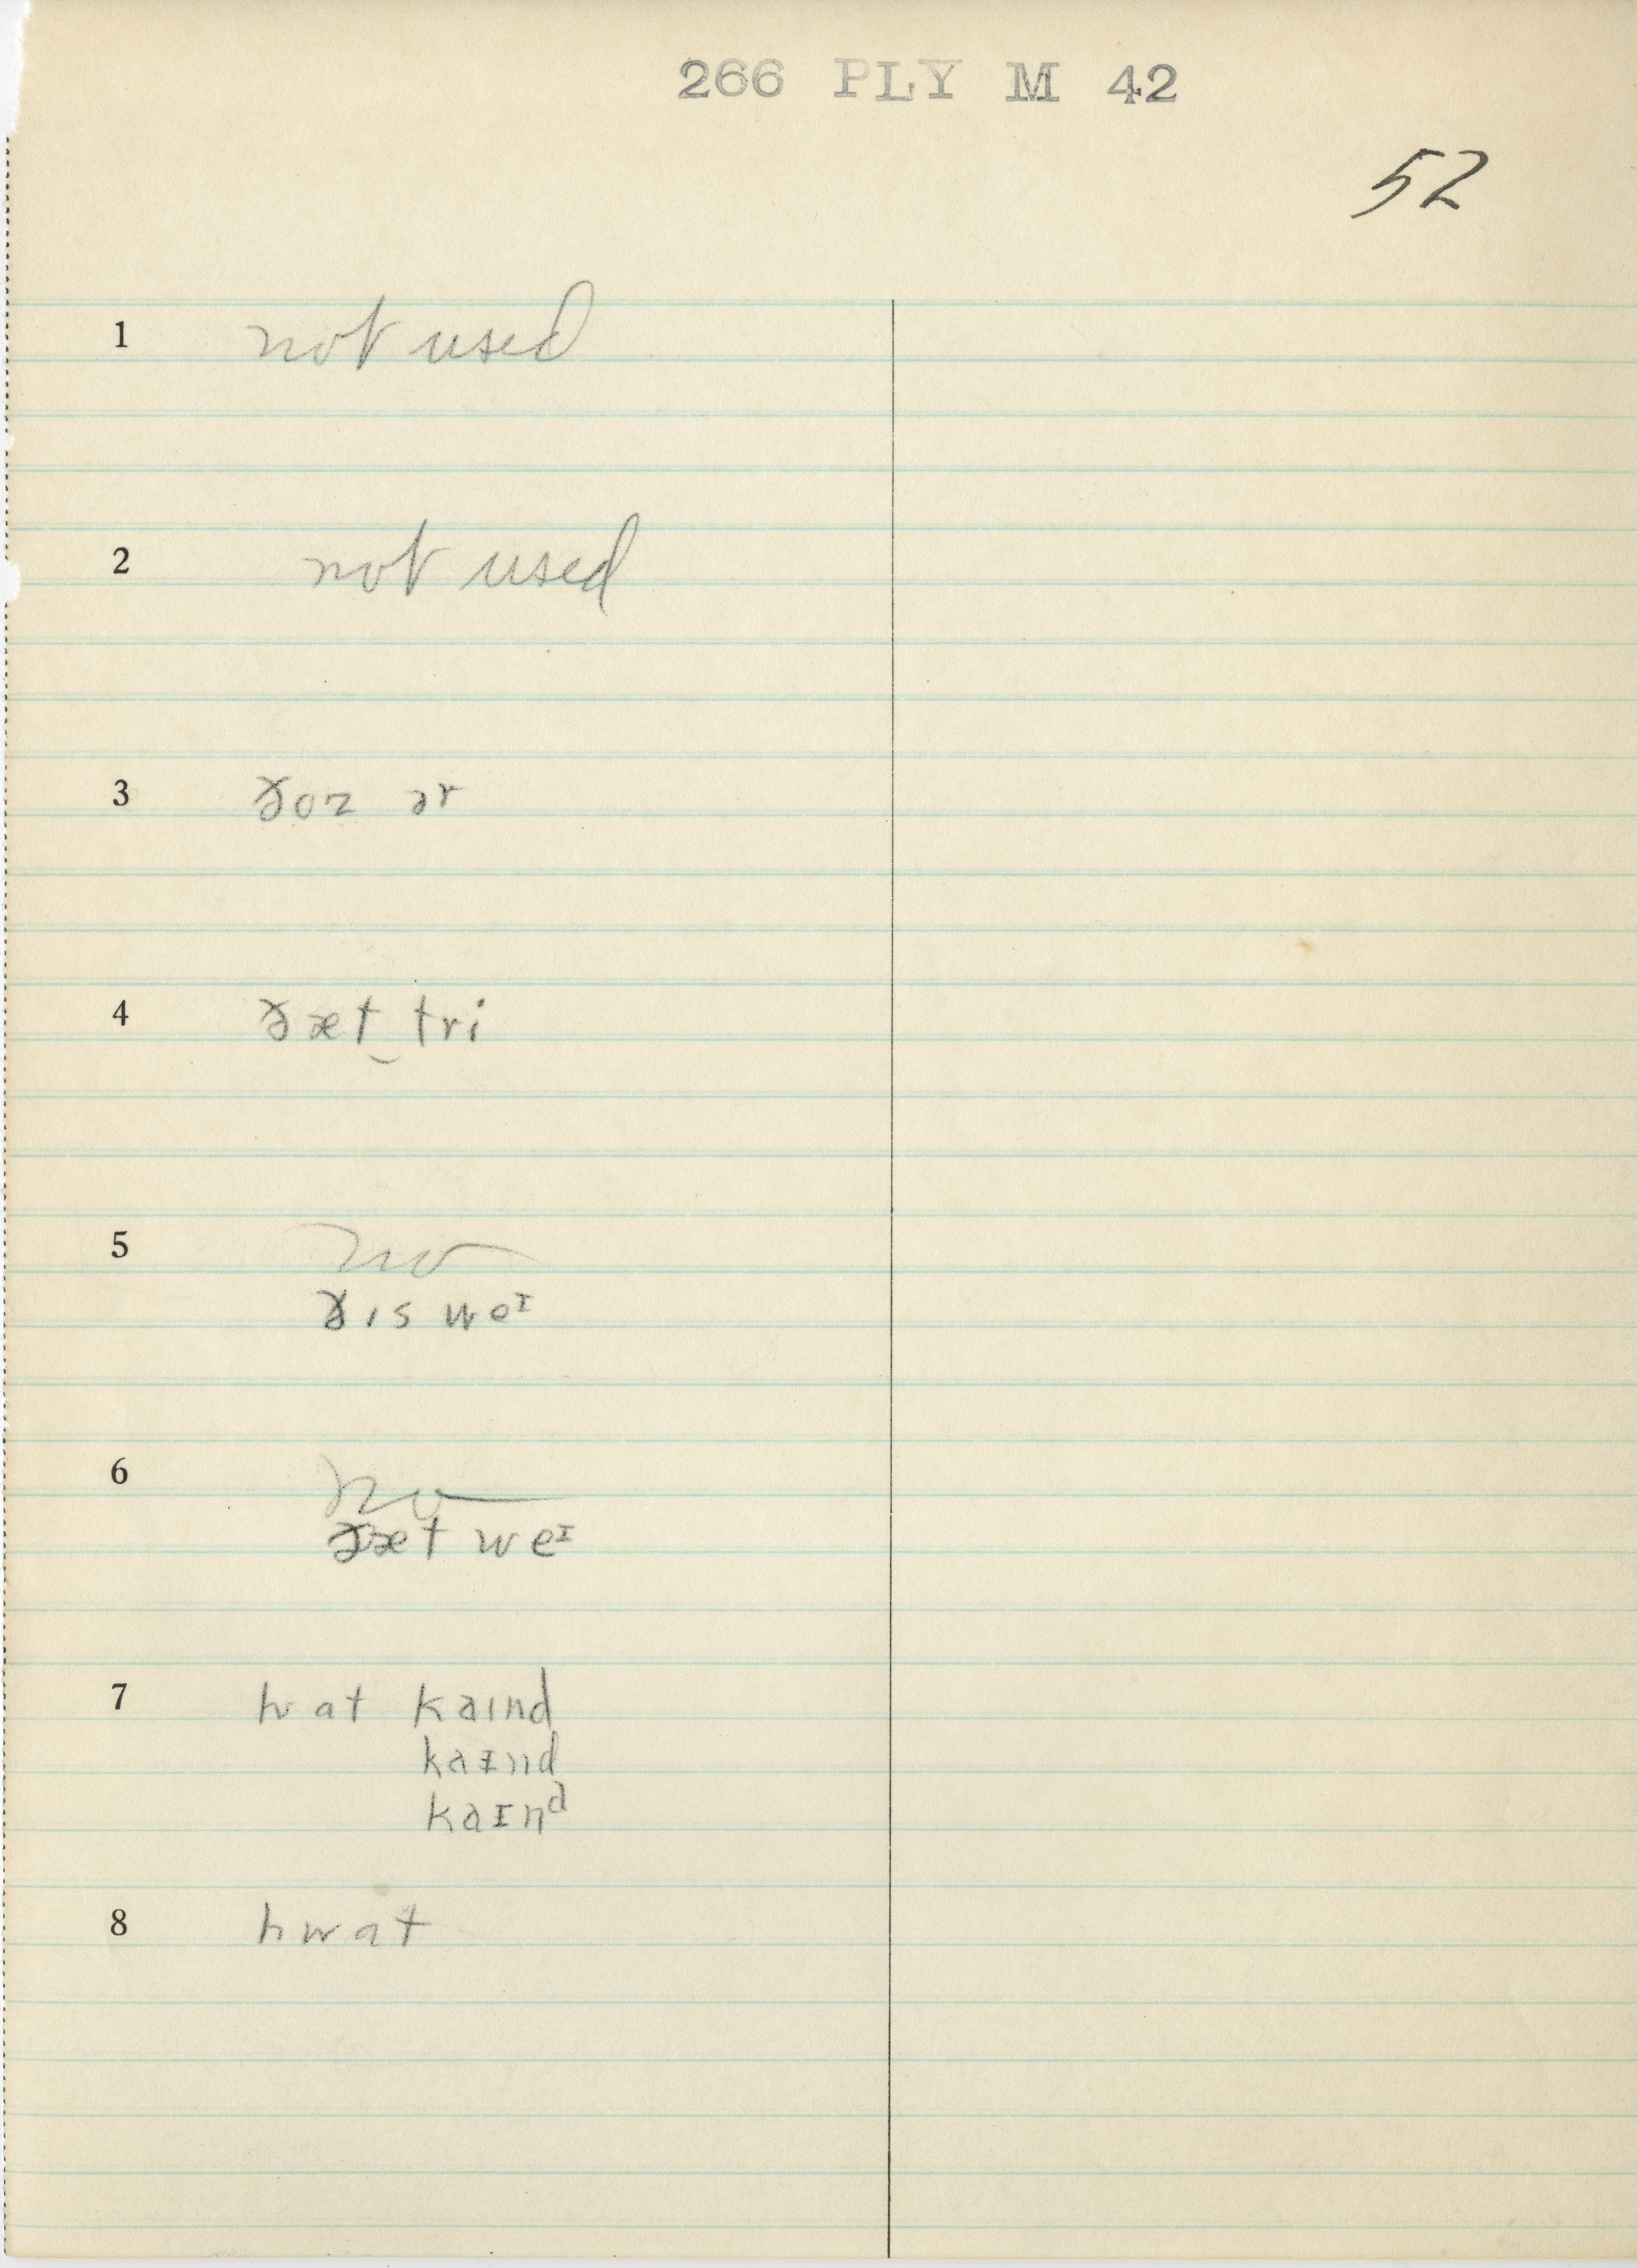 266 PLY M 42
52
1 not used
2 not used
3 ðoz ər
4 ðæt‿tri
5 no
ðɪs weᶦ
6 no
ðæt weᶦ
7 hwat kaɪnd
kaɪnd
kaɪnᵈ
8 hwat